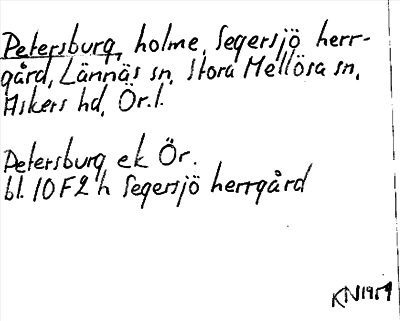 Petersburg, holme, Segersjö herr-
gård, Lännäs sn, Stora Mellösa sn,
Askers hd, Ör.l.
Petersburg ek Ör.
bl. 10F2h Segersjö herrgård
KN1959